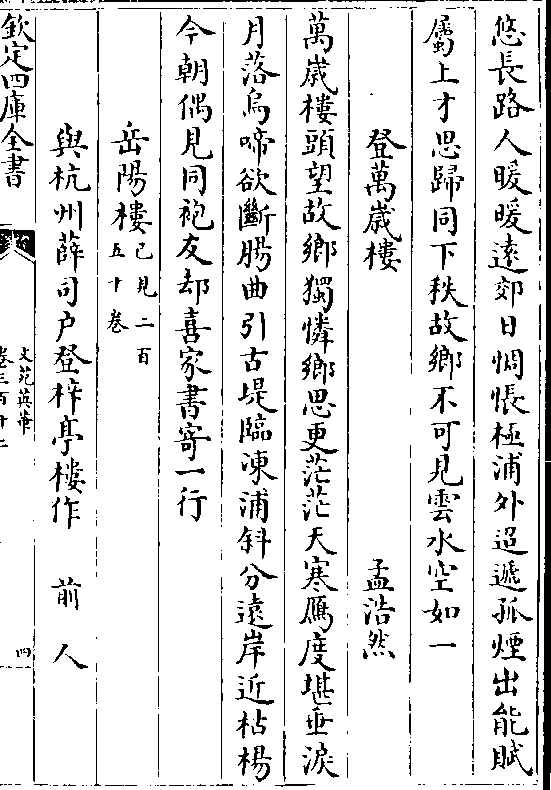 悠長路人暖暖遠郊日惆悵極浦外迢遞孤煙出能賦
屬上才思歸同下秩故鄉不可見雲水空如一
登萬歲樓　孟浩然
萬歲樓頭望故鄉獨憐鄉思更茫茫天寒鴈度堪垂淚
月落烏啼欲斷腸曲引古堤臨凍浦斜分遠岸近枯楊
今朝偶見同袍友却喜家書寄一行
岳陽樓已見二百五十卷
與杭州薛司户登梓亭樓作　前人
欽定四庫全書
文苑英華
卷三百十二
四